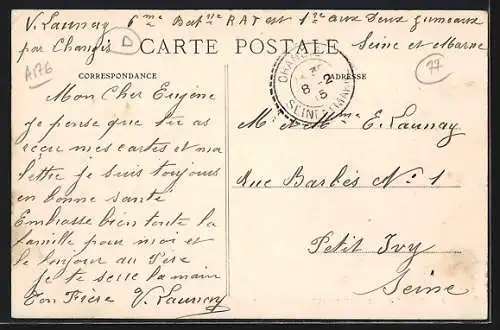 V. Launay 6me Batne RAT est 1re aux Deux gumeaux
par Changis Seine et Marne
D
CARTE POSTALE
A176
77
CORRESPONDANCE
ADRESSE
CHANGIS
8 -2
5
SEINE
Mon Cher Eugène
je pense que tu as
recu mes cartes et ma
lettre je suis toujours
en bonne santé
Embrasse bien toute la
famille pour moi et
le bonjour au Père
Je te serre la main
Ton Frère V. Launay
M. et Mme E. Launay
Rue Barbès No 1
Petit Ivry
Seine